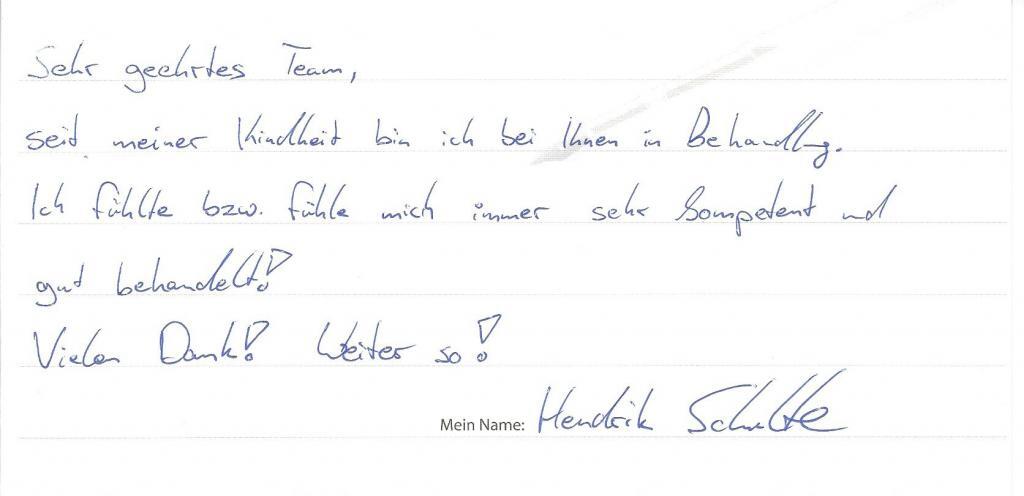 Sehr geehrtes Team,
seit meiner Kindheit bin ich bei Ihnen in Behandlung.
Ich fühlte bzw. fühle mich immer sehr kompetent und
gut behandelt!
Vielen Dank! Weiter so!
Mein Name: Hendrik Schulte